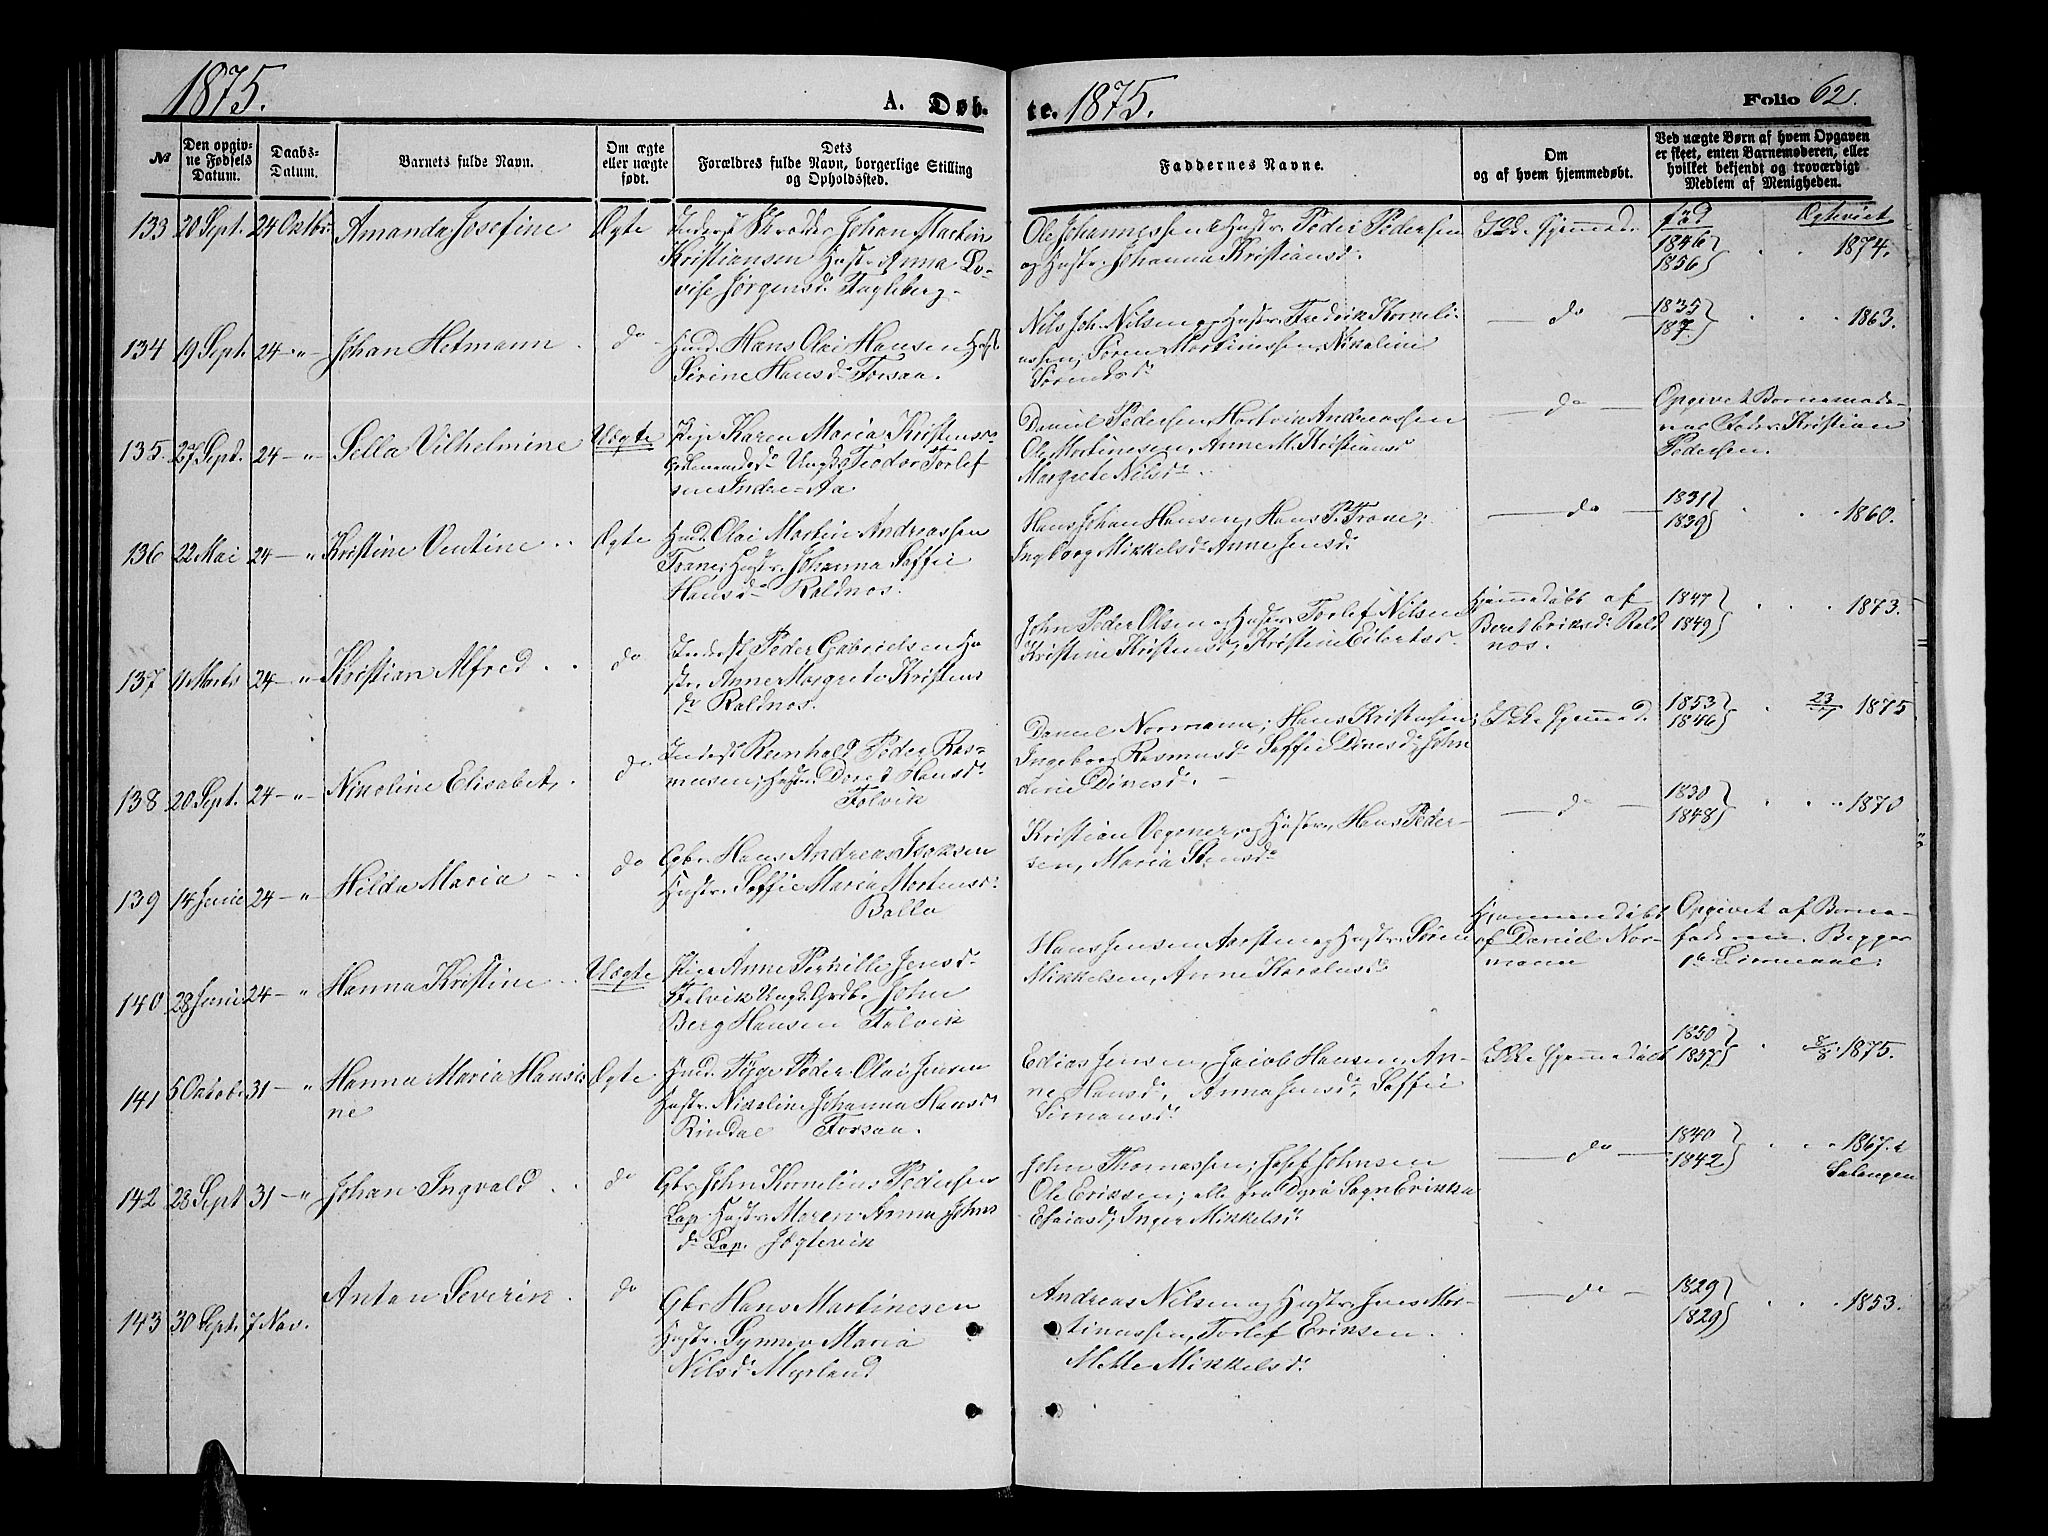 1875.
A. Døb-
te. 1875.
Folio 62.
№
Den opgiv-
ne Fødsels
Datum.
Daabs-
Datum.
Barnets fulde Navn.
Om ægte
eller uægte
født.
Dets
Forældres fulde Navn, borgerlige Stilling
og Opholdssted.
Faddernes Navne.
Om
og af hvem hjemmedøbt.
Ved uægte Børn af hvem Opgaven
er skeet, enten Barnemoderen, eller
hvilket bekjendt og troværdigt
Medlem af Menigheden.
133 20 Sept. 24 Oktbr. Amanda Josefine Ægte
Inderst Skrædder Johan Martin
Kristiansen Hustr. Anna Lo-
vise Jørgensd.
Ole Johannessen & Hustr. Peder Pedersen
og Hustr. Johanna Kristiansd.
Ikke hjemmed.
fød Ægteviet
1846
1856 1874.
134 19 Sept. 24 -"- Johan Hetmann do
Husm. Hans Olai Hansen Hust
Serine Hansd. Forsaa.
Nils Joh. Nilsen og Hustr. Fredrik Korneli-
ussen, Søren Martinussen, Nikoline
Sørensd.
do
1835
1863.
135. 27 Sept. 24 -"- Sella Vilhelmine Uægte
Pige Karen Maria Kristensd.
Ungk. Teodor Torlef
sen Indre-Aa
Daniel Pedersen, Hartvik Andreassen
Ole Martinesen, Anne M. Kristiansd
Margrete Nilsd.
do
Opgivet Barnemode-
rens Fader Kristian
Pedersen.
136 22 Mai 24 -"- Kristine Ventine Ægte
Husm. Olai Martin Andreassen
Trane, Hustr. Johanna Soffie
Hansd. Roldnes.
Hans Johan Hansen, Hans P. Trane,
Ingeborg Mikkelsd. Anne Jensd.
do
1831
1839 1860.
137 11 Marts 24 -"- Kristian Alfred do
Inderst Peder Gabrielsen Hu
str. Anne Margrete Kristens
d. Roldnes.
John Peder Olsen og Hustr. Torlef Nilsen
Kristine Kristensd, Kristine Eilertsd.
Hjemmedøbt af
Beret Eriksd. Rold
nes.
1847
1849 1873.
138 20 Sept. 24 -"- Nikoline Elisabet, do
Inderst Reinhold Peder Ras-
mussen, Hustr. Doret Hansd.
Folvik
Daniel Normann, Hans Kristensen,
Ingeborg Rasmusd. Soffie Dinesd. John
Dinesd.
Ikke hjemmed.
1853
1846 23/7 1875
139 14 Junie 24 -"- Hilda Maria do
Gbr. Hans Andreas Isaksen
Hustr. Soffie Maria Mortensd.
Balla
Kristian Vegener, og Hustr. Hans Peder-
sen, Maria Stensd.
do
1830
1848 1870
140 28 Junie 24 -"- Hanna Kristine Uægte
Pige Anne Pernille Jensd.
Folvik Ungk. John
Berg Hansen Folvik
Hans Jensen Aarsten og Hustr. Søren
Mikkelsen, Anne Karolusd.
Hjemmedøbt
af Daniel Nor-
mann
Opgivet af Barne-
faderen.
141 5 Oktobr. 31 -"- Hanna Maria Hansi
ne Ægte
Husm. Tyge Peder Olai Jensen
Hustr. Nikoline Johanna Hansd
Rindal Forsaa.
Edias Jensen, Jacob Hansen, An-
ne Hansd, Anna Jensd. Soffie
Simonsd.
Ikke hjemmedøbt
1850
1857 8/8 1875.
142 28 Sept 31 -"- Johan Ingvald do
Gbr. John Kornelius Pedersen
Lap. Hustr. Maren Anna Johns
d. Lap. Jægtevik
John Thomassen, Josef Johnsen
Ole Eriksen, alle fra Dyrø Sogn Erikka
Esaiasd, Inger Mikkelsd.
do
1840
1842 1867. i
Salangen
143 30 Sept. 7 Nov. Anton Severin do
Gbr Hans Martinesen
Hustr. Synnev Maria
Nilsd Myrland
Andreas Nilsen og Hustr. Jens Mar-
tinussen, Torlef Eriksen.
Mette Mikkelsd.
do
1829
1829 1853.